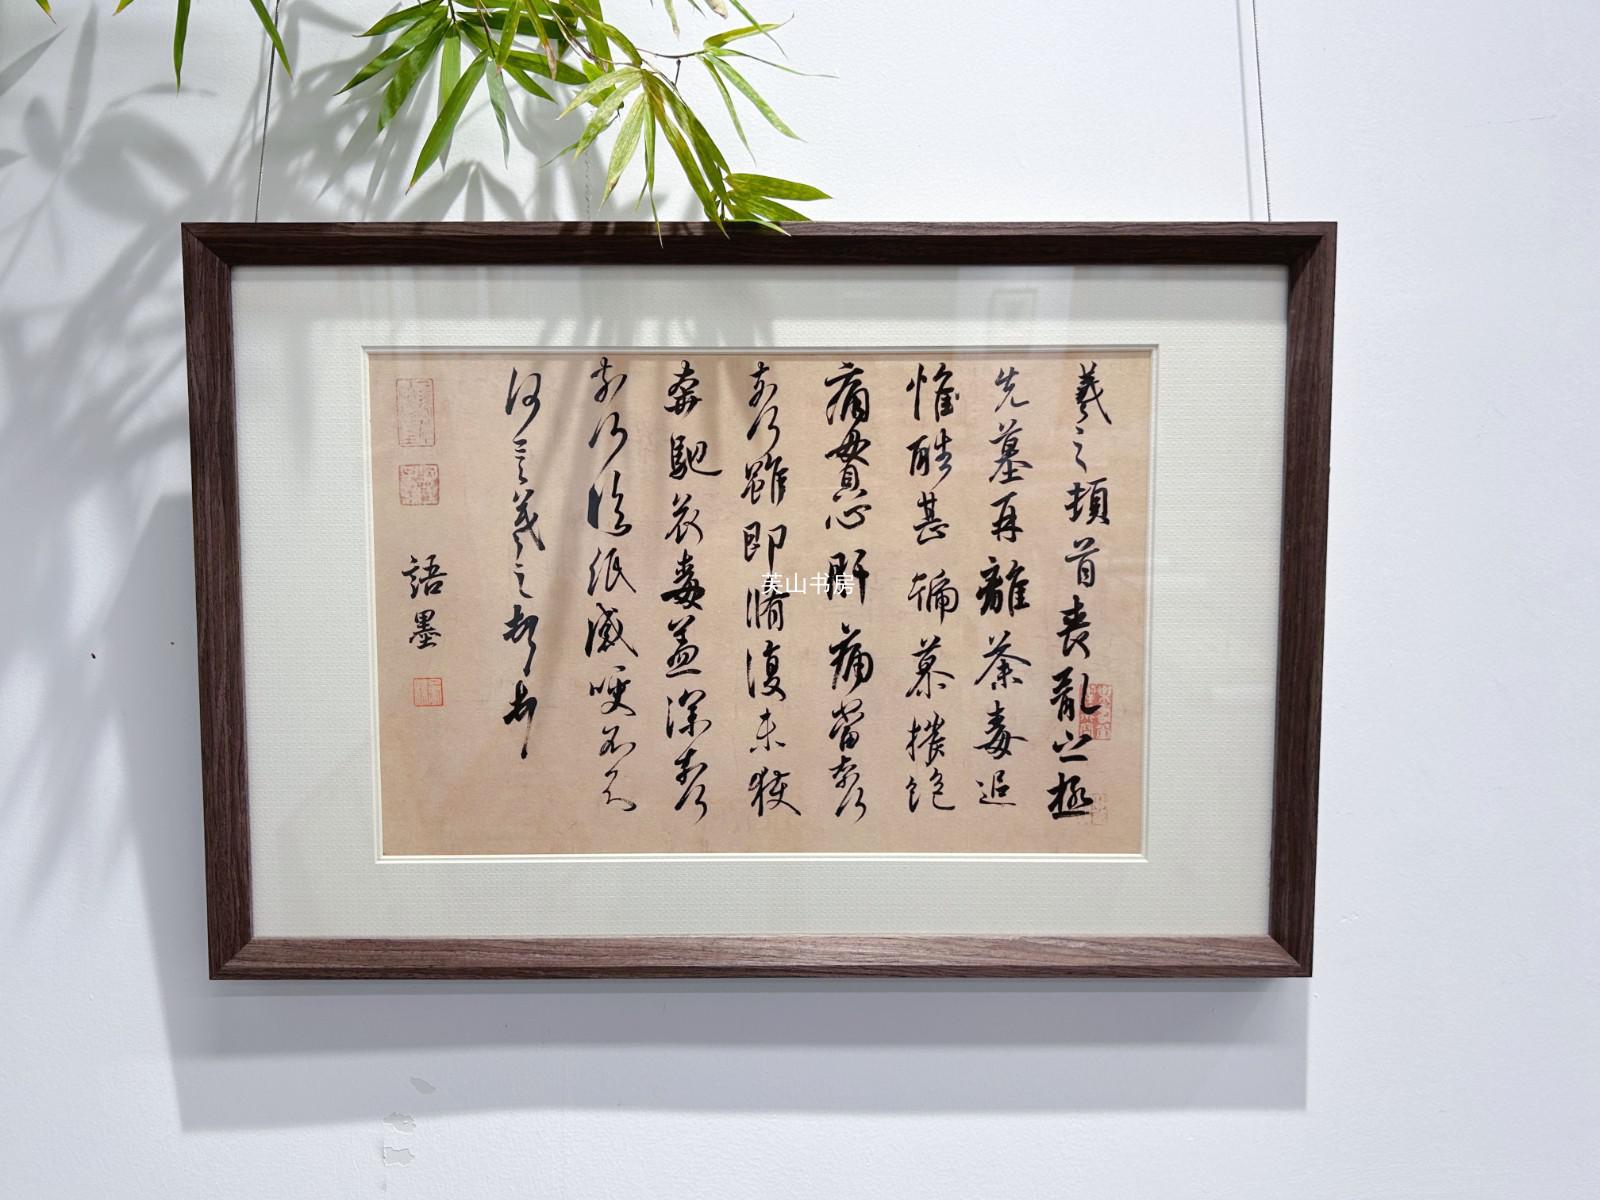 羲之頓首喪亂之極
先墓再離荼毒追
惟酷甚號慕摧絶
痛貫心肝痛當奈何
奈何雖即脩復未獲
奔馳哀毒益深奈何
奈何臨紙感哽不知
何言羲之頓首頓首
語墨
芙山书房